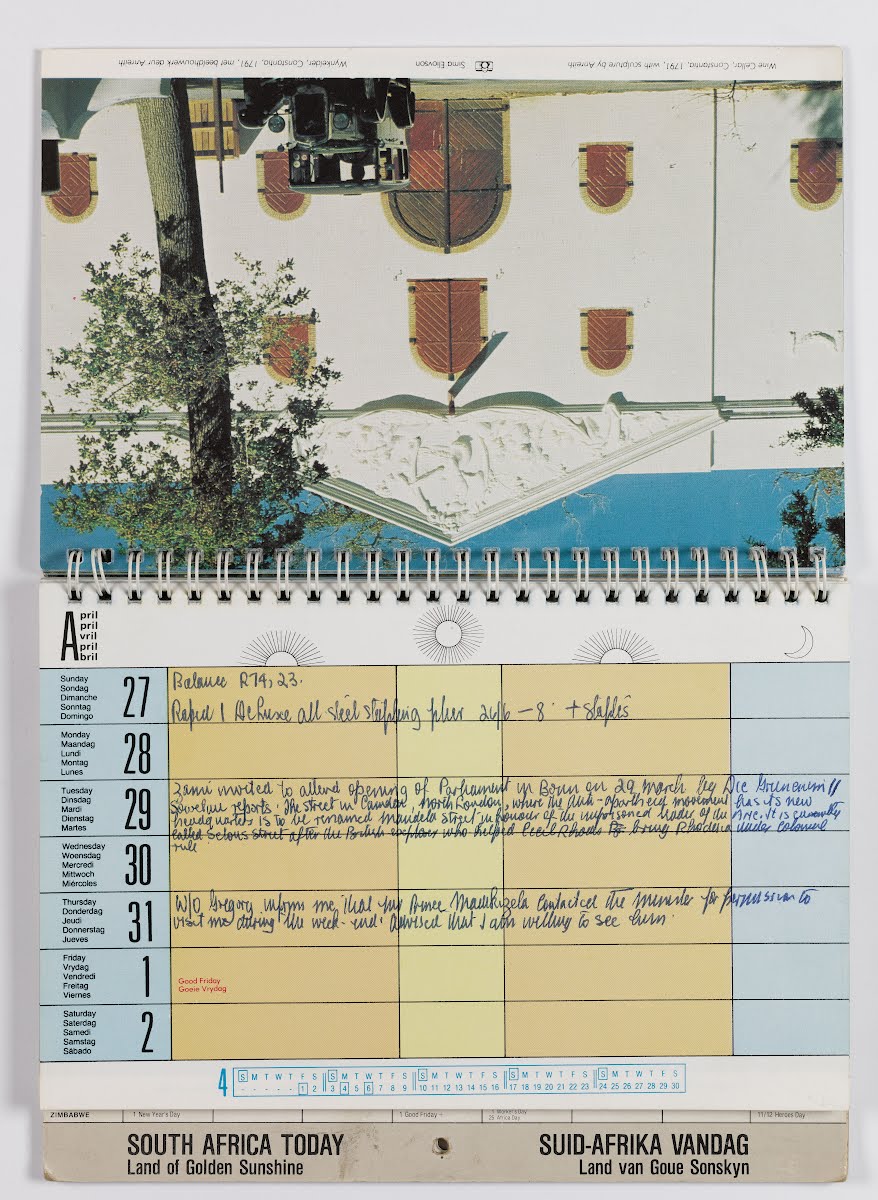 Wine Cellar, Constantia, 1791, with sculpture by Anreith
Sima Eliovson
Wynkelder, Constantia, 1791, met beeldhouwerk deur Anreith
April
April
Avril
April
Abril
Sunday
Sondag
Dimanche
Sonntag
Domingo
27
Balance R74,23.
Rapid 1 DeLuxe all steel stappling plier 26/6 – 8 + staples
Monday
Maandag
Lundi
Montag
Lunes
28
Tuesday
Dinsdag
Mardi
Dienstag
Martes
29
Zami invited to attend opening of Parliament in Bonn on 29 March by Die Grunen
Sowetan reports: The street in Camden, North London, where the Anti-apartheid movement has its new
headquarters is to be renamed Mandela Street in honour of the imprisoned leader of the ANC. It is currently
called Selous street after the British explorer who helped Cecil Rhodes to bring Rhodesia under colonial
rule
Wednesday
Woensdag
Mercredi
Mittwoch
Miércoles
30
Thursday
Donderdag
Jeudi
Donnerstag
Jueves
31
W/O Gregory informs me that Prince Madikizela contacted the minister for permission to
visit me during the week-end. Advised that I am willing to see him.
Friday
Vrydag
Vendredi
Freitag
Viernes
1
Good Friday
Goeie Vrydag
Saturday
Saterdag
Samedi
Samstag
Sábado
2
4
S M T W T F S S M T W T F S S M T W T F S S M T W T F S S M T W T F S
- - - - - 1 2 3 4 5 6 7 8 9 10 11 12 13 14 15 16 17 18 19 20 21 22 23 24 25 26 27 28 29 30
ZIMBABWE
1 New Year's Day
1 Good Friday
1 Worker's Day
25 Africa Day
11/12 Heroes Day
SOUTH AFRICA TODAY
Land of Golden Sunshine
SUID-AFRIKA VANDAG
Land van Goue Sonskyn